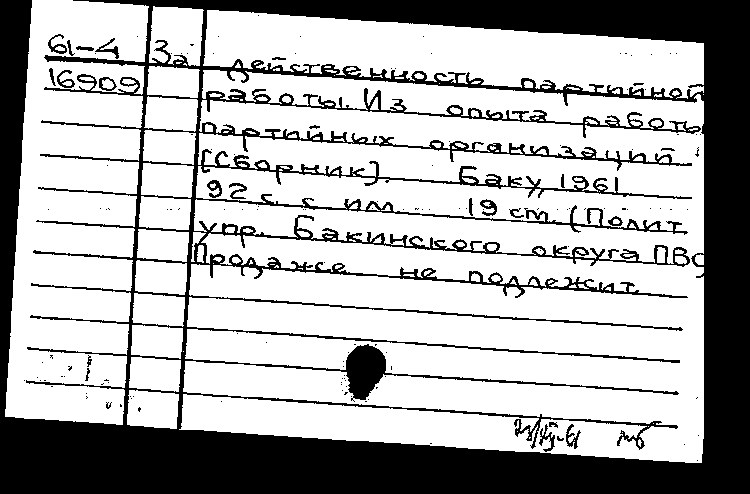 61-4 За действенность партийной
16909 работы. Из опыта работы
партийных организаций
[Сборник]. Баку, 1961.
92 с. с илл. 19 см. (Полит.
упр. Бакинского округа ПВО
Продаже не подлежит.